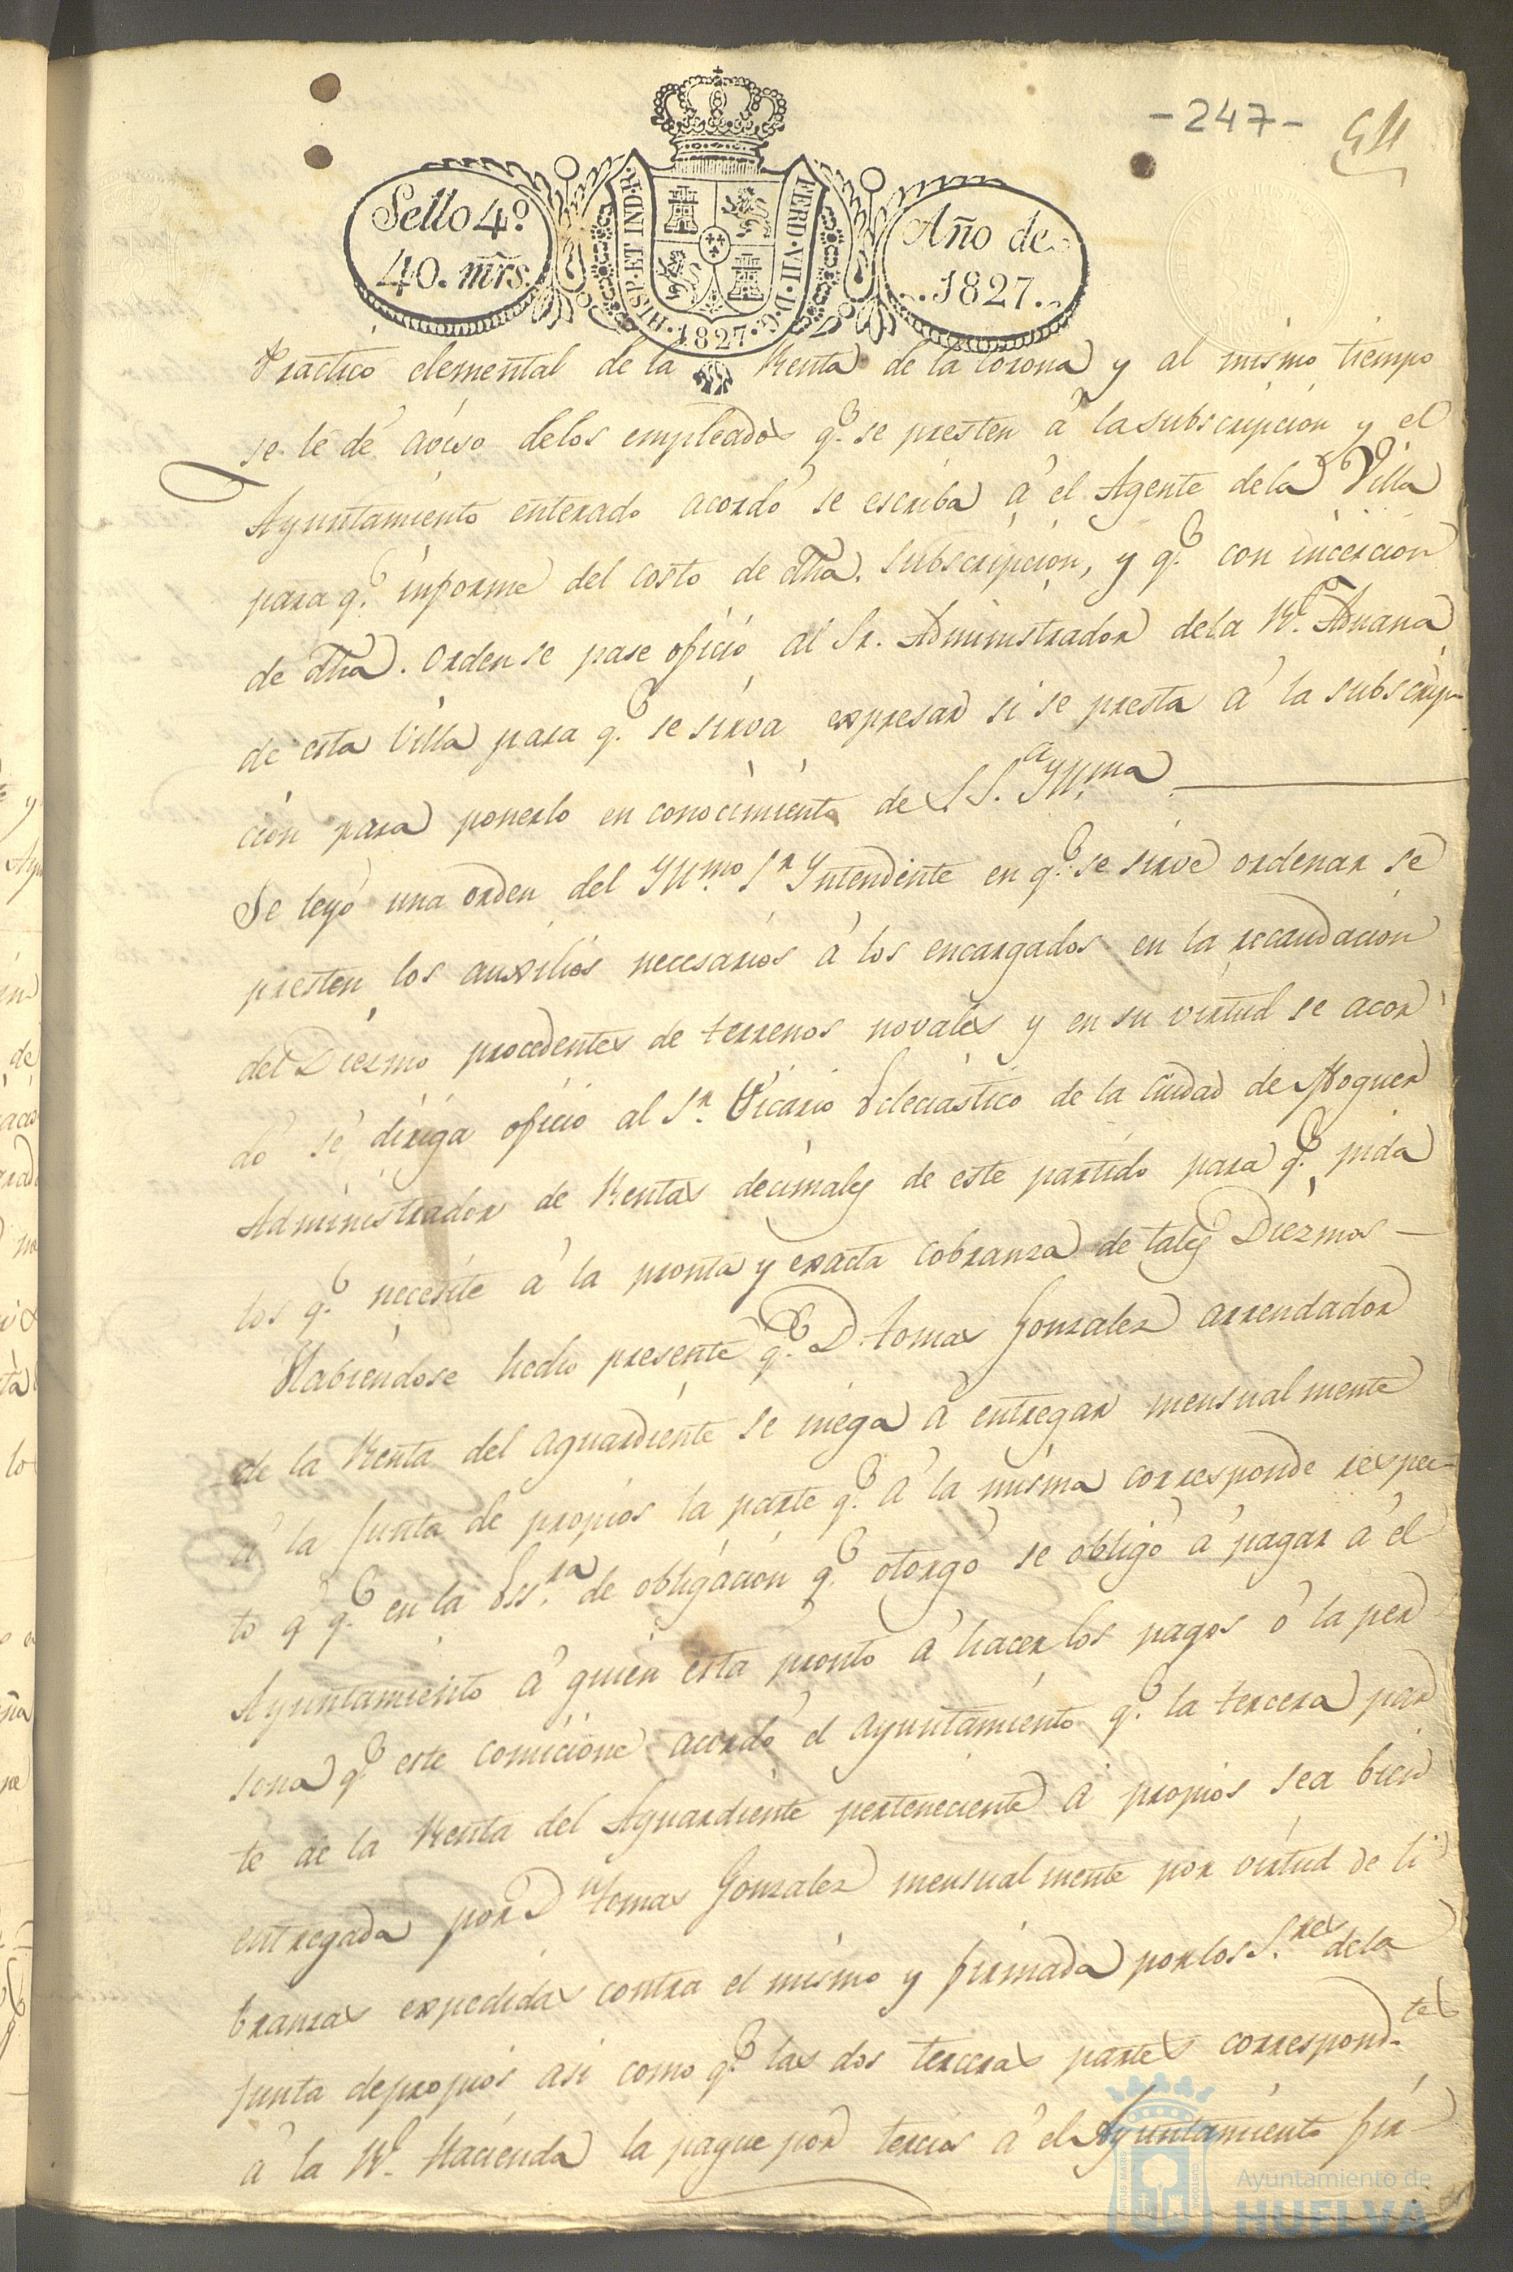 -247- 54
Sello 4º
40. mrs.
HISP. ET IND. R.
FERD. VII. D. G.
.1827.
Año de
..1827..
Practico elemental de la Renta de la Corona y al mismo tiempo
se le dé aviso de los empleados q.e se presten á la subscripcion y el
Ayuntamiento enterado acordó se escriba á el Agente de la Villa
para q.e informe del costo de dha. subscripcion, y q.e con incercion
de dha. orden se pase oficio al Sr. Administrador de la Rl. Aduana
de esta Villa para q.e se sirva expresar si se presta á la subscrip-
cion para ponerlo en conocimiento de S S.a Yll.ma
Se leyó una orden del Yll.mo Sr Yntendente en q.e se sirve ordenar se
presten los auxilios necesarios á los encargados en la recaudacion
del Diezmo procedentes de terrenos novales y en su virtud se acor
dó se dirija oficio al Sr. Vicario Eclesiastico de la Ciudad de Moguer
Administrador de Rentas decimales de este partido para q.e pida
los q.e necesite á la pronta y exacta cobranza de tales Diezmos —
Habiendose hecho presente q.e D. Tomas Gonzalez arrendador
de la Renta del aguardiente se niega á entregar mensualmente
á la Junta de propios la parte q.e á la misma corresponde respec-
to á q.e en la Ess.ra de obligacion q.e otorgó se obligó á pagar á el
Ayuntamiento á quien está pronto á hacer los pagos ó la per
sona q.e este comicione acordó el ayuntamiento q.e la tercera par
te de la Renta del Aguardiente perteneciente á propios sea bien
entregada por Dn Tomas Gonzalez mensualmente por virtud de li
branzas expedidas contra el mismo y firmada por los S.res de la
Junta de propios asi como q.e las dos terceras partes correspond.tes
á la Rl. Hacienda la pague por tercios á el Ayuntamiento fir-
Ayuntamiento de
HUELVA